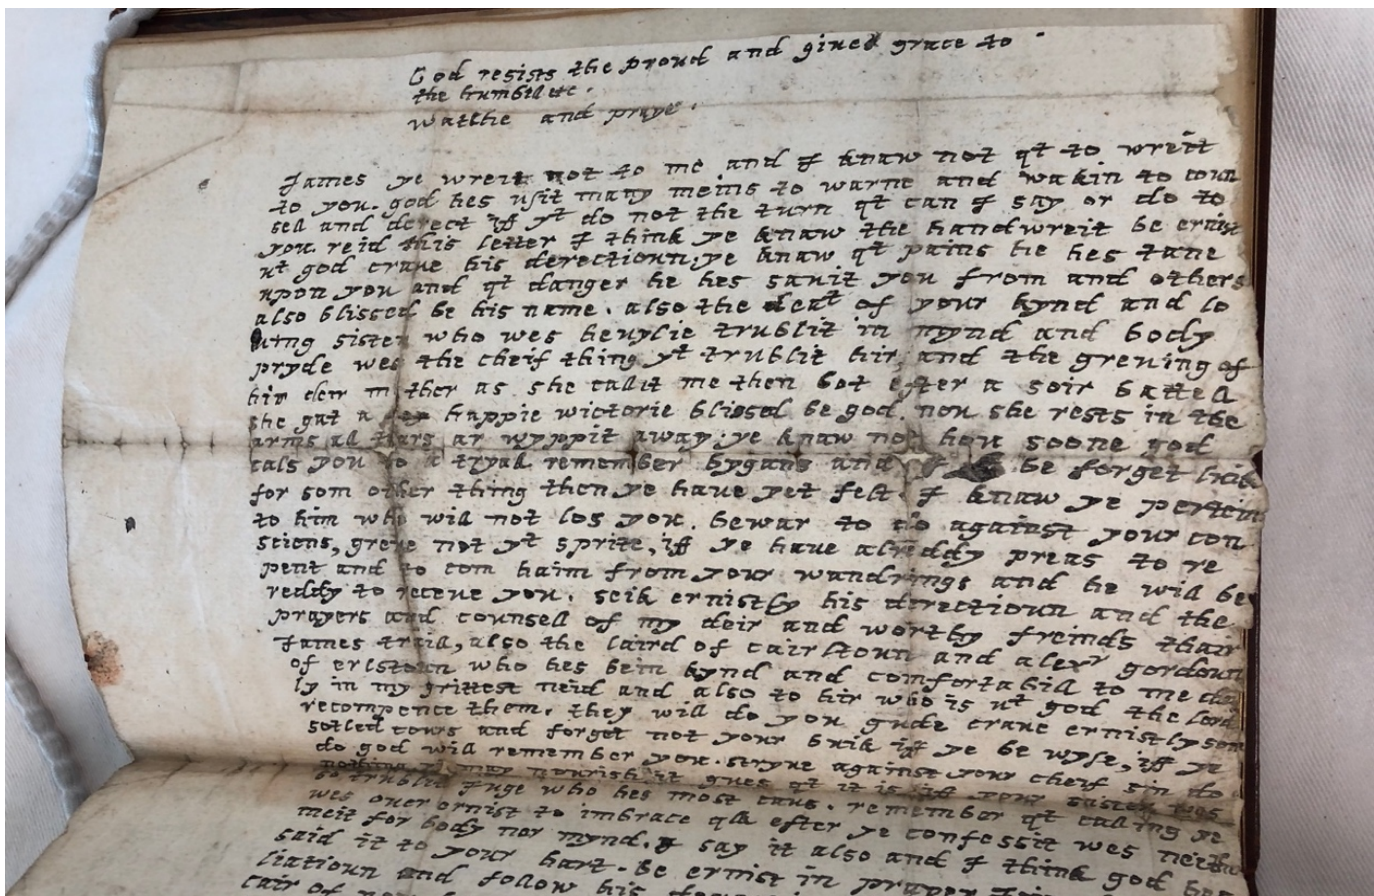 God resists the proud and gives grace to
the humbill etc.
watche and praye.
James ye wreit not to me and I knaw not qt to wreit
to you. god hes usit many meins to warne and wakin to coun
sell and derect iff yt do not the turn qt can I say or do to
you. reid this letter I think ye knaw the handwreit be ernist
wt god crave his derectioun, ye knaw qt pains he hes tane
upon you and qt danger he hes savit you from and others
also blissed be his name. also the deat of your kynd and lo
ving sister who wes hevylie trublit in mynd and body
pryde wes the cheif thing yt trublit hir, and the greving of
hir deir mither as she callit me then bot efter a soir battell
she gat a happie wictorie blissed be god. nou she rests in the
arms all tears ar wyppit away. ye knaw not hou soone god
cals you to a tryall remember bygans and if be forget luik
for som other thing then ye have yet felt. I knaw ye pertein
to him who will not los you. bewar to do against your con
sciens, greve not yt sprite, iff ye have alreddy preas to re
pent and to com haim from your wandrings and he will be
reddy to receve you. seik ernistly his derectioun and the
prayers and counsell of my deir and worthy freinds thair
James traill, also the laird of cairltoun and alexr gordoun
of erlstoun who hes bein kynd and comfortabill to me
ly in my grittest neid and also to hir who is wt god the Lord
recompence them. they will do you gude crave ernistly som
setled cours and forget not your buik iff ye be wyse, iff ye
do god will remember you. stryve against your cheif sin do
nothing yt may nourish it gues qt it is iff your sister wes
so trublit juge who hes most caus. remember qt calling ye
wes over ernist to imbrace qll efter ye confessit wes neither
meit for body nor mynd. I say it also and I think god hes
said it to your hart. be ernist in prayer
liatioun and follow his
cair of